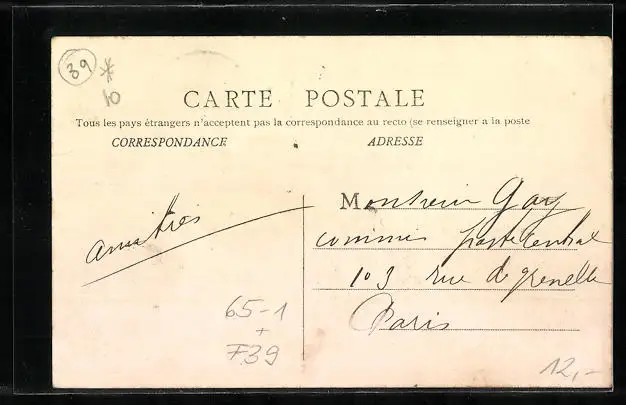 39
*
10
CARTE POSTALE
Tous les pays étrangers n'acceptent pas la correspondance au recto (se renseigner a la poste
CORRESPONDANCE
ADRESSE
amitiés
Monsieur Gay
commis poste central
103 rue de grenelle
Paris
65-1
+
F39
12,-